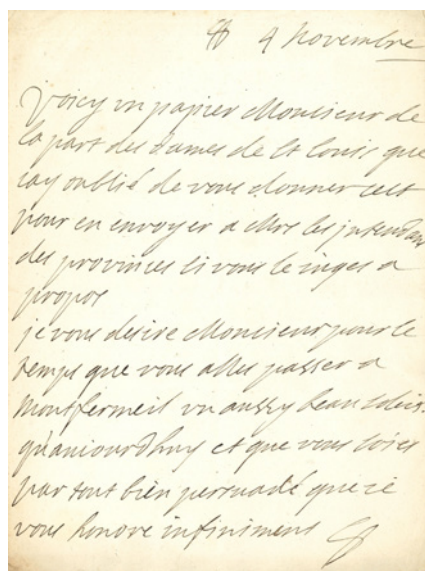 4 novembre
Voicy un papier Monsieur de
la part des dames de st louis que
iay oublié de vous donner cest
pour en envoyer a Mrs les jntendans
des provinces si vous le iugez a
propos
je vous desire Monsieur pour le
temps que vous alles passer a
montfermeil un aussy beau soleil
quaujourdhuy et que vous soies
par tout bien persuadé que ie
vous honore infiniment